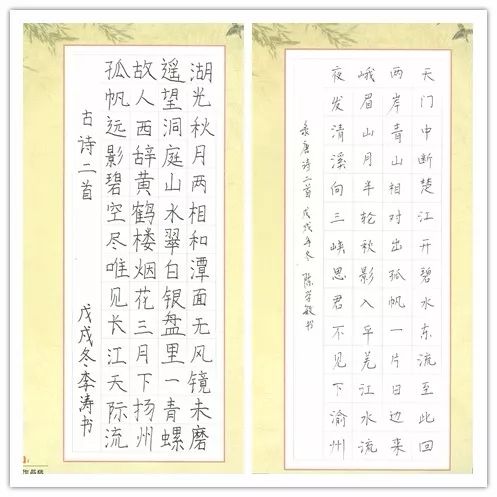 湖光秋月两相和潭面无风镜未磨
遥望洞庭山水翠白银盘里一青螺
故人西辞黄鹤楼烟花三月下扬州
孤帆远影碧空尽唯见长江天际流
古诗二首
戊戌冬·李涛书
作品纸
天门中断楚江开碧水东流至此回
两岸青山相对出孤帆一片日边来
峨眉山月半轮秋影入平羌江水流
夜发清溪向三峡思君不见下渝州
录唐诗二首 戊戌年冬 陈学敏书